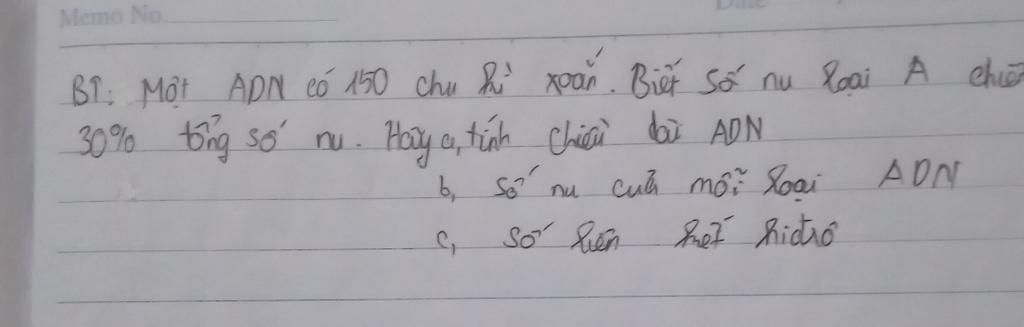 Memo No.
BT: Một ADN có 150 chu kì xoắn. Biết số nu loại A chiế
30% tổng số nu. Hãy a, tính chiều dài ADN
b, số nu của mỗi loại ADN
c, số liên kết hiđrô